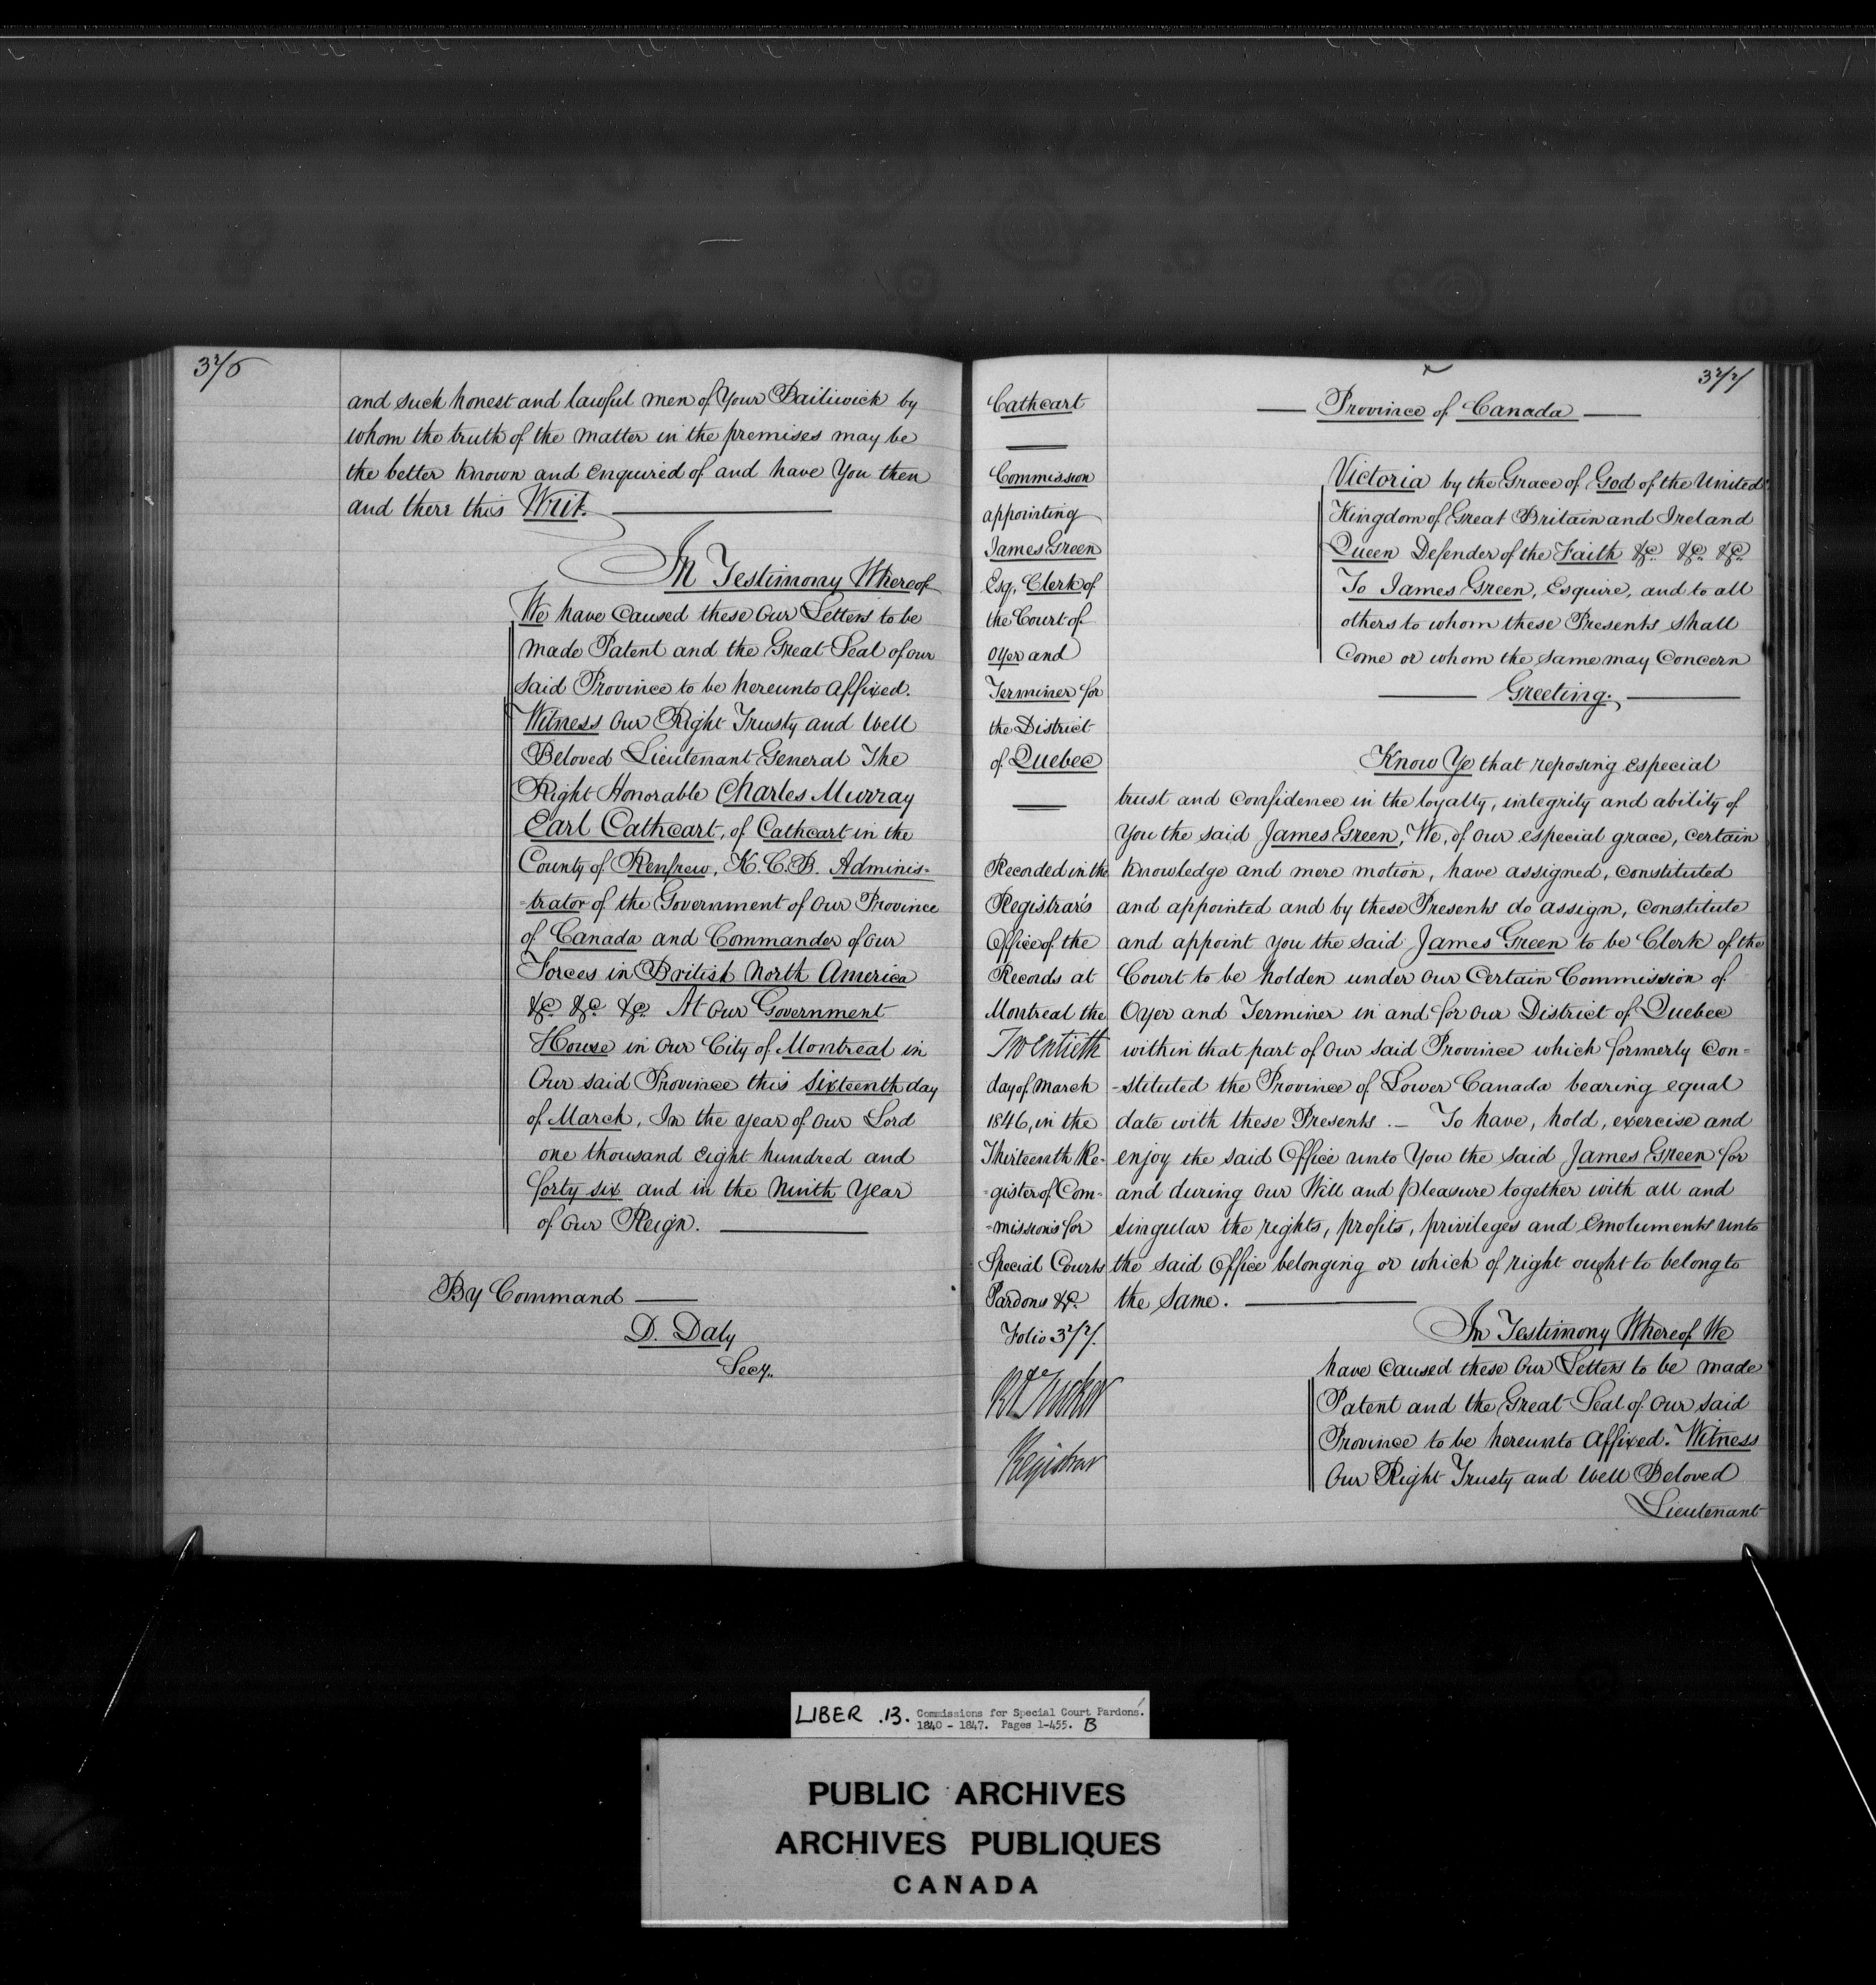 326
and such honest and lawful men of Your Bailiwick by
whom the truth of the matter in the premises may be
the better known and enquired of and have You then
and there this Writ.
In Testimony Whereof
We have caused these Our Letters to be
made Patent and the Great Seal of our
said Province to be hereunto affixed.
Witness Our Right Trusty and Well
Beloved Lieutenant General The
Right Honorable Charles Murray
Earl Cathcart, of Cathcart in the
County of Renfrew, K.C.B. Adminis=
=trator of the Government of Our Province
of Canada and Commander of our
Forces in British North America
&c. &c. &c. At Our Government
House in Our City of Montreal in
Our said Province this Sixteenth day
of March, In the year of Our Lord
one thousand Eight hundred and
forty six and in the Ninth Year
of Our Reign.
By Command
D. Daly
Secy.
327
Cathcart
Commission
appointing
James Green
Esq. Clerk of
the Court of
Oyer and
Terminer for
the District
of Quebec
Recorded in the
Registrar's
Office of the
Records at
Montreal the
Twentieth
day of March
1846, in the
Thirteenth Re-
=gister of Com=
=missions for
Special Courts
Pardons &c.
Folio 327.
Registrar
Province of Canada
Victoria by the Grace of God of the United
Kingdom of Great Britain and Ireland
Queen Defender of the Faith &c. &c. &c.
To James Green, Esquire, and to all
others to whom these Presents shall
Come or whom the same may Concern
Greeting.
Know Ye that reposing especial
trust and confidence in the loyalty, integrity and ability of
You the said James Green, We, of our especial grace, certain
knowledge and mere motion, have assigned, constituted
and appointed and by these Presents do assign, constitute
and appoint You the said James Green to be Clerk of the
Court to be holden under our Certain Commission of
Oyer and Terminer in and for our District of Quebec
within that part of our said Province which formerly Con=
-stituted the Province of Lower Canada bearing equal
date with these Presents .— To have, hold, exercise and
enjoy the said Office unto You the said James Green for
and during Our Will and pleasure together with all and
singular the rights, profits, privileges and Emoluments unto
the said Office belonging or which of right ought to belong to
the same.
In Testimony Whereof We
have caused these Our Letters to be made
Patent and the Great Seal of Our said
Province to be hereunto affixed. Witness
Our Right Trusty and Well Beloved
Lieutenant
LIBER .13. Commissions for Special Court Pardons.
1840 - 1847. Pages 1-455. B
PUBLIC ARCHIVES
ARCHIVES PUBLIQUES
CANADA